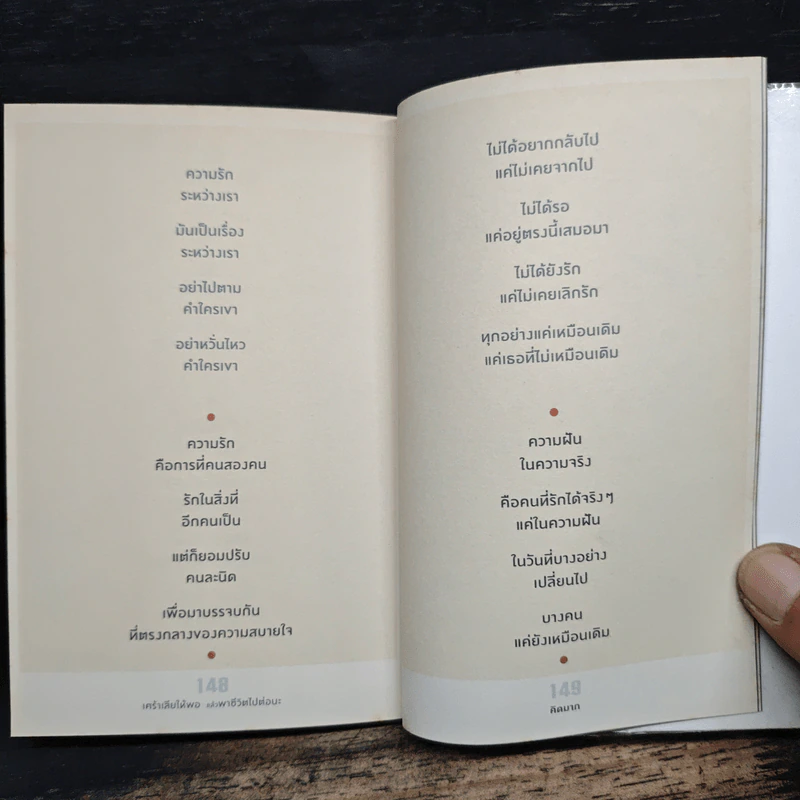 ความรัก
ระหว่างเรา
มันเป็นเรื่อง
ระหว่างเรา
อย่าไปตาม
คำใครเขา
อย่าหวั่นไหว
คำใครเขา
ความรัก
คือการที่คนสองคน
รักในสิ่งที่
อีกคนเป็น
แต่ก็ยอมปรับ
คนละนิด
เพื่อมาบรรจบกัน
ที่ตรงกลางของความสบายใจ
148
เศร้าเสียให้พอ แล้วพาชีวิตไปต่อนะ
ไม่ได้อยากกลับไป
แค่ไม่เคยจากไป
ไม่ได้รอ
แค่อยู่ตรงนี้เสมอมา
ไม่ได้ยังรัก
แค่ไม่เคยเลิกรัก
ทุกอย่างแค่เหมือนเดิม
แค่เธอที่ไม่เหมือนเดิม
ความฝัน
ในความจริง
คือคนที่รักได้จริงๆ
แค่ในความฝัน
ในวันที่บางอย่าง
เปลี่ยนไป
บางคน
แค่ยังเหมือนเดิม
149
คิดมาก